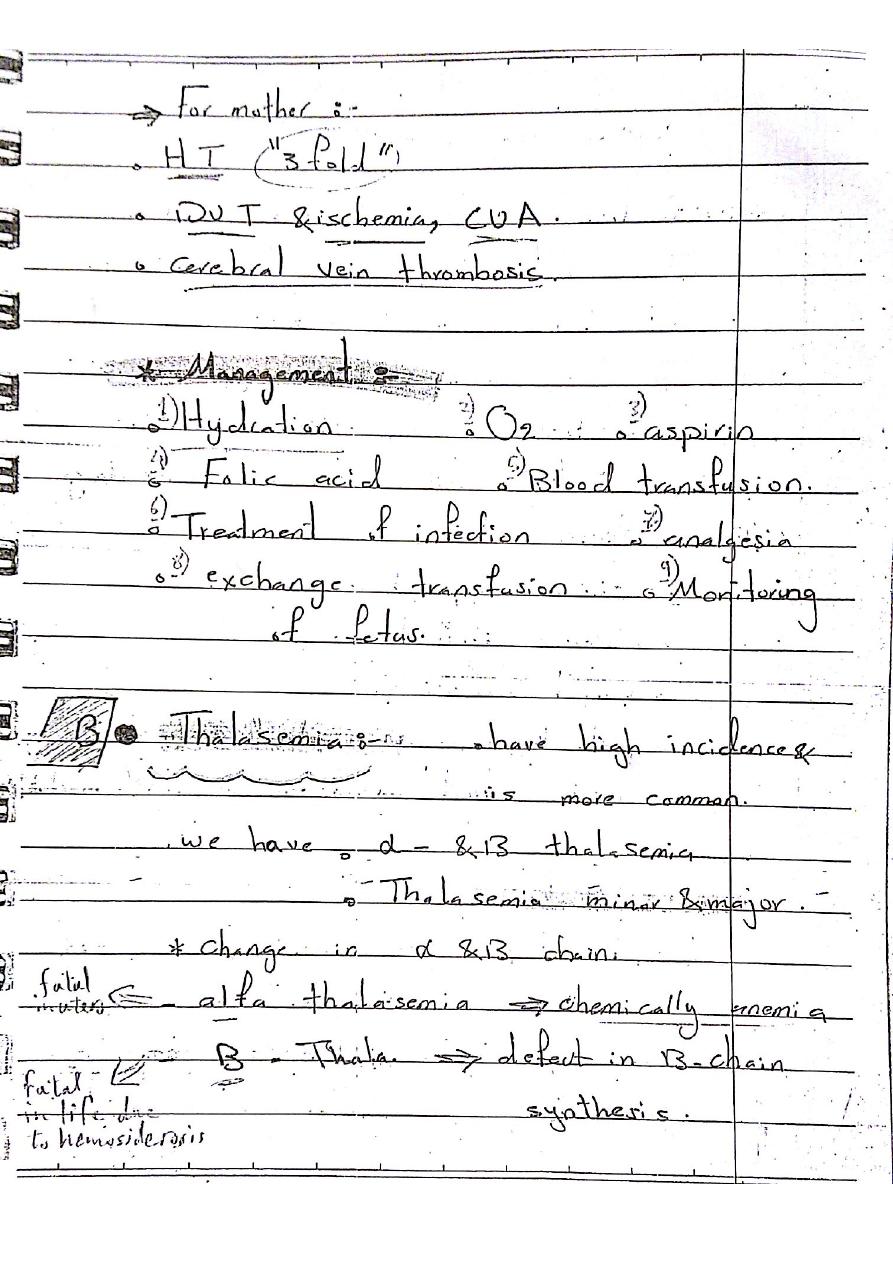 ⇒ For mother :-
• HT ("3 fold")
• DVT & ischemia, CVA.
• Cerebral vein thrombosis.
* Management :-
1) Hydration 2) O2 3) aspirin
4) Folic acid 5) Blood transfusion.
6) Treatment of infection 7) analgesia
8) exchange transfusion 9) Monitoring
of fetus.
B • Thalasemia :- • have high incidence &
is more common.
we have • α - & B thalasemia
• Thalasemia minor & major.
* change in α & B chain.
fatal
in uters ⇐ - alfa thalasemia ⇒ chemically anemia
B - Thala. ⇒ defect in B-chain
synthesis.
fatal
in life due
to hemosiderosis